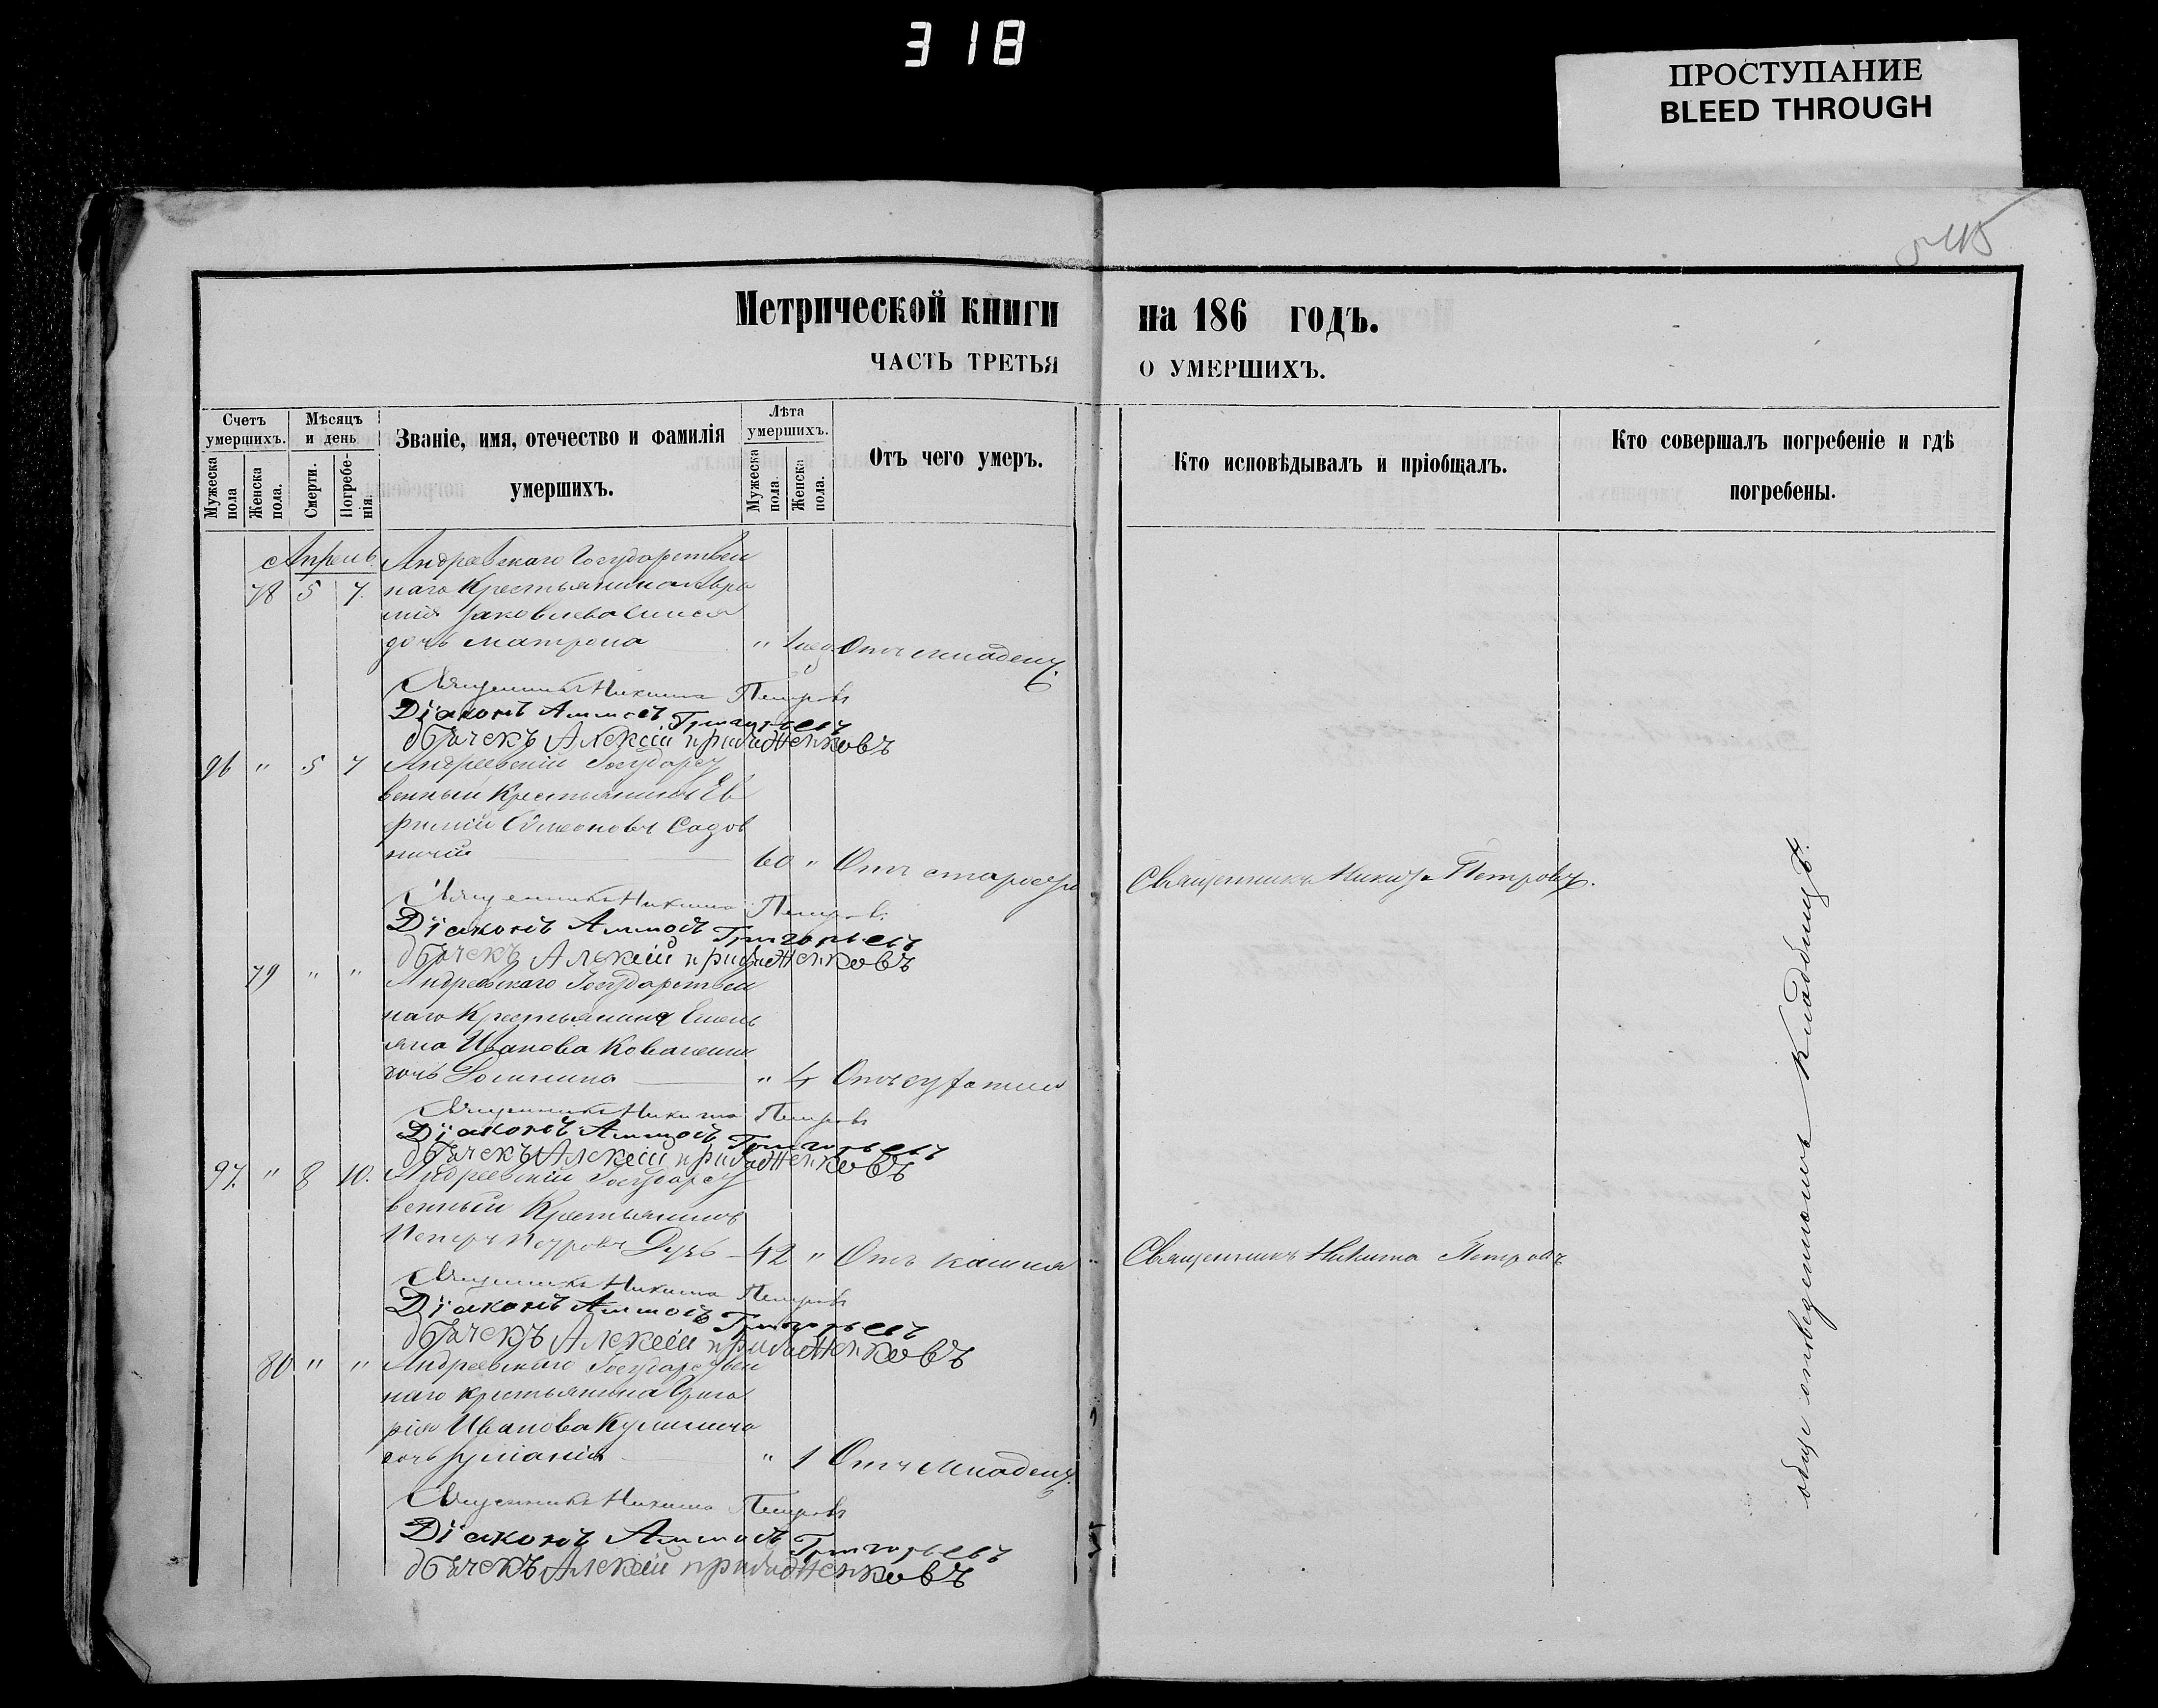 318
ПРОСТУПАНИЕ
BLEED THROUGH
Метрической книги на 186 годъ.
ЧАСТЬ ТРЕТЬЯ О УМЕРШИХЪ.
Счетъ умершихъ.
Мужеска пола
Женска пола.
Мѣсяцъ и день
Смерти.
Погребенія.
Званіе, имя, отечество и фамилія умершихъ.
Лѣта умершихъ.
Мужеска пола
Женска пола.
Отъ чего умеръ.
Кто исповѣдывалъ и пріобщалъ.
Кто совершалъ погребеніе и гдѣ погребены.
Апрель Андревскаго Государствен
78 5 7. наго Крестьянина
Яковлева
дочь Матрона " 1 Отъ младенч.
Священникъ Никита Петровъ
Діаконъ Аммосъ Григорьевъ
дьячекъ Алексій
96 " 5 7 Андреевскій Государст
венный Крестьянинъ Ев
фимій Симеоновъ Садов
ничій 60 " Отъ старости Священникъ Никита Петровъ.
Священникъ Никита Петровъ
Діаконъ Аммосъ Григорьевъ
дьячекъ Алексій
79 " " Андреевскаго Государствен
наго Крестьянина Емель
яна Иванова
дочь " 4 Отъ
Священникъ Никита Петровъ
Діаконъ Аммосъ Григорьевъ
дьячекъ Алексій
97. " 8 10. Андреевскій Государст
венный Крестьянинъ
Петръ Петровъ 42 " Отъ кашля Священникъ Никита Петровъ
Священникъ Никита Петровъ
Діаконъ Аммосъ Григорьевъ
дьячекъ Алексій
80 " " Андреевскаго Государствен
наго крестьянина Григо
рія Иванова
дочь " 1 Отъ младенч.
Священникъ Никита Петровъ
Діаконъ Аммосъ Григорьевъ
дьячекъ Алексій
кладбищѣ.